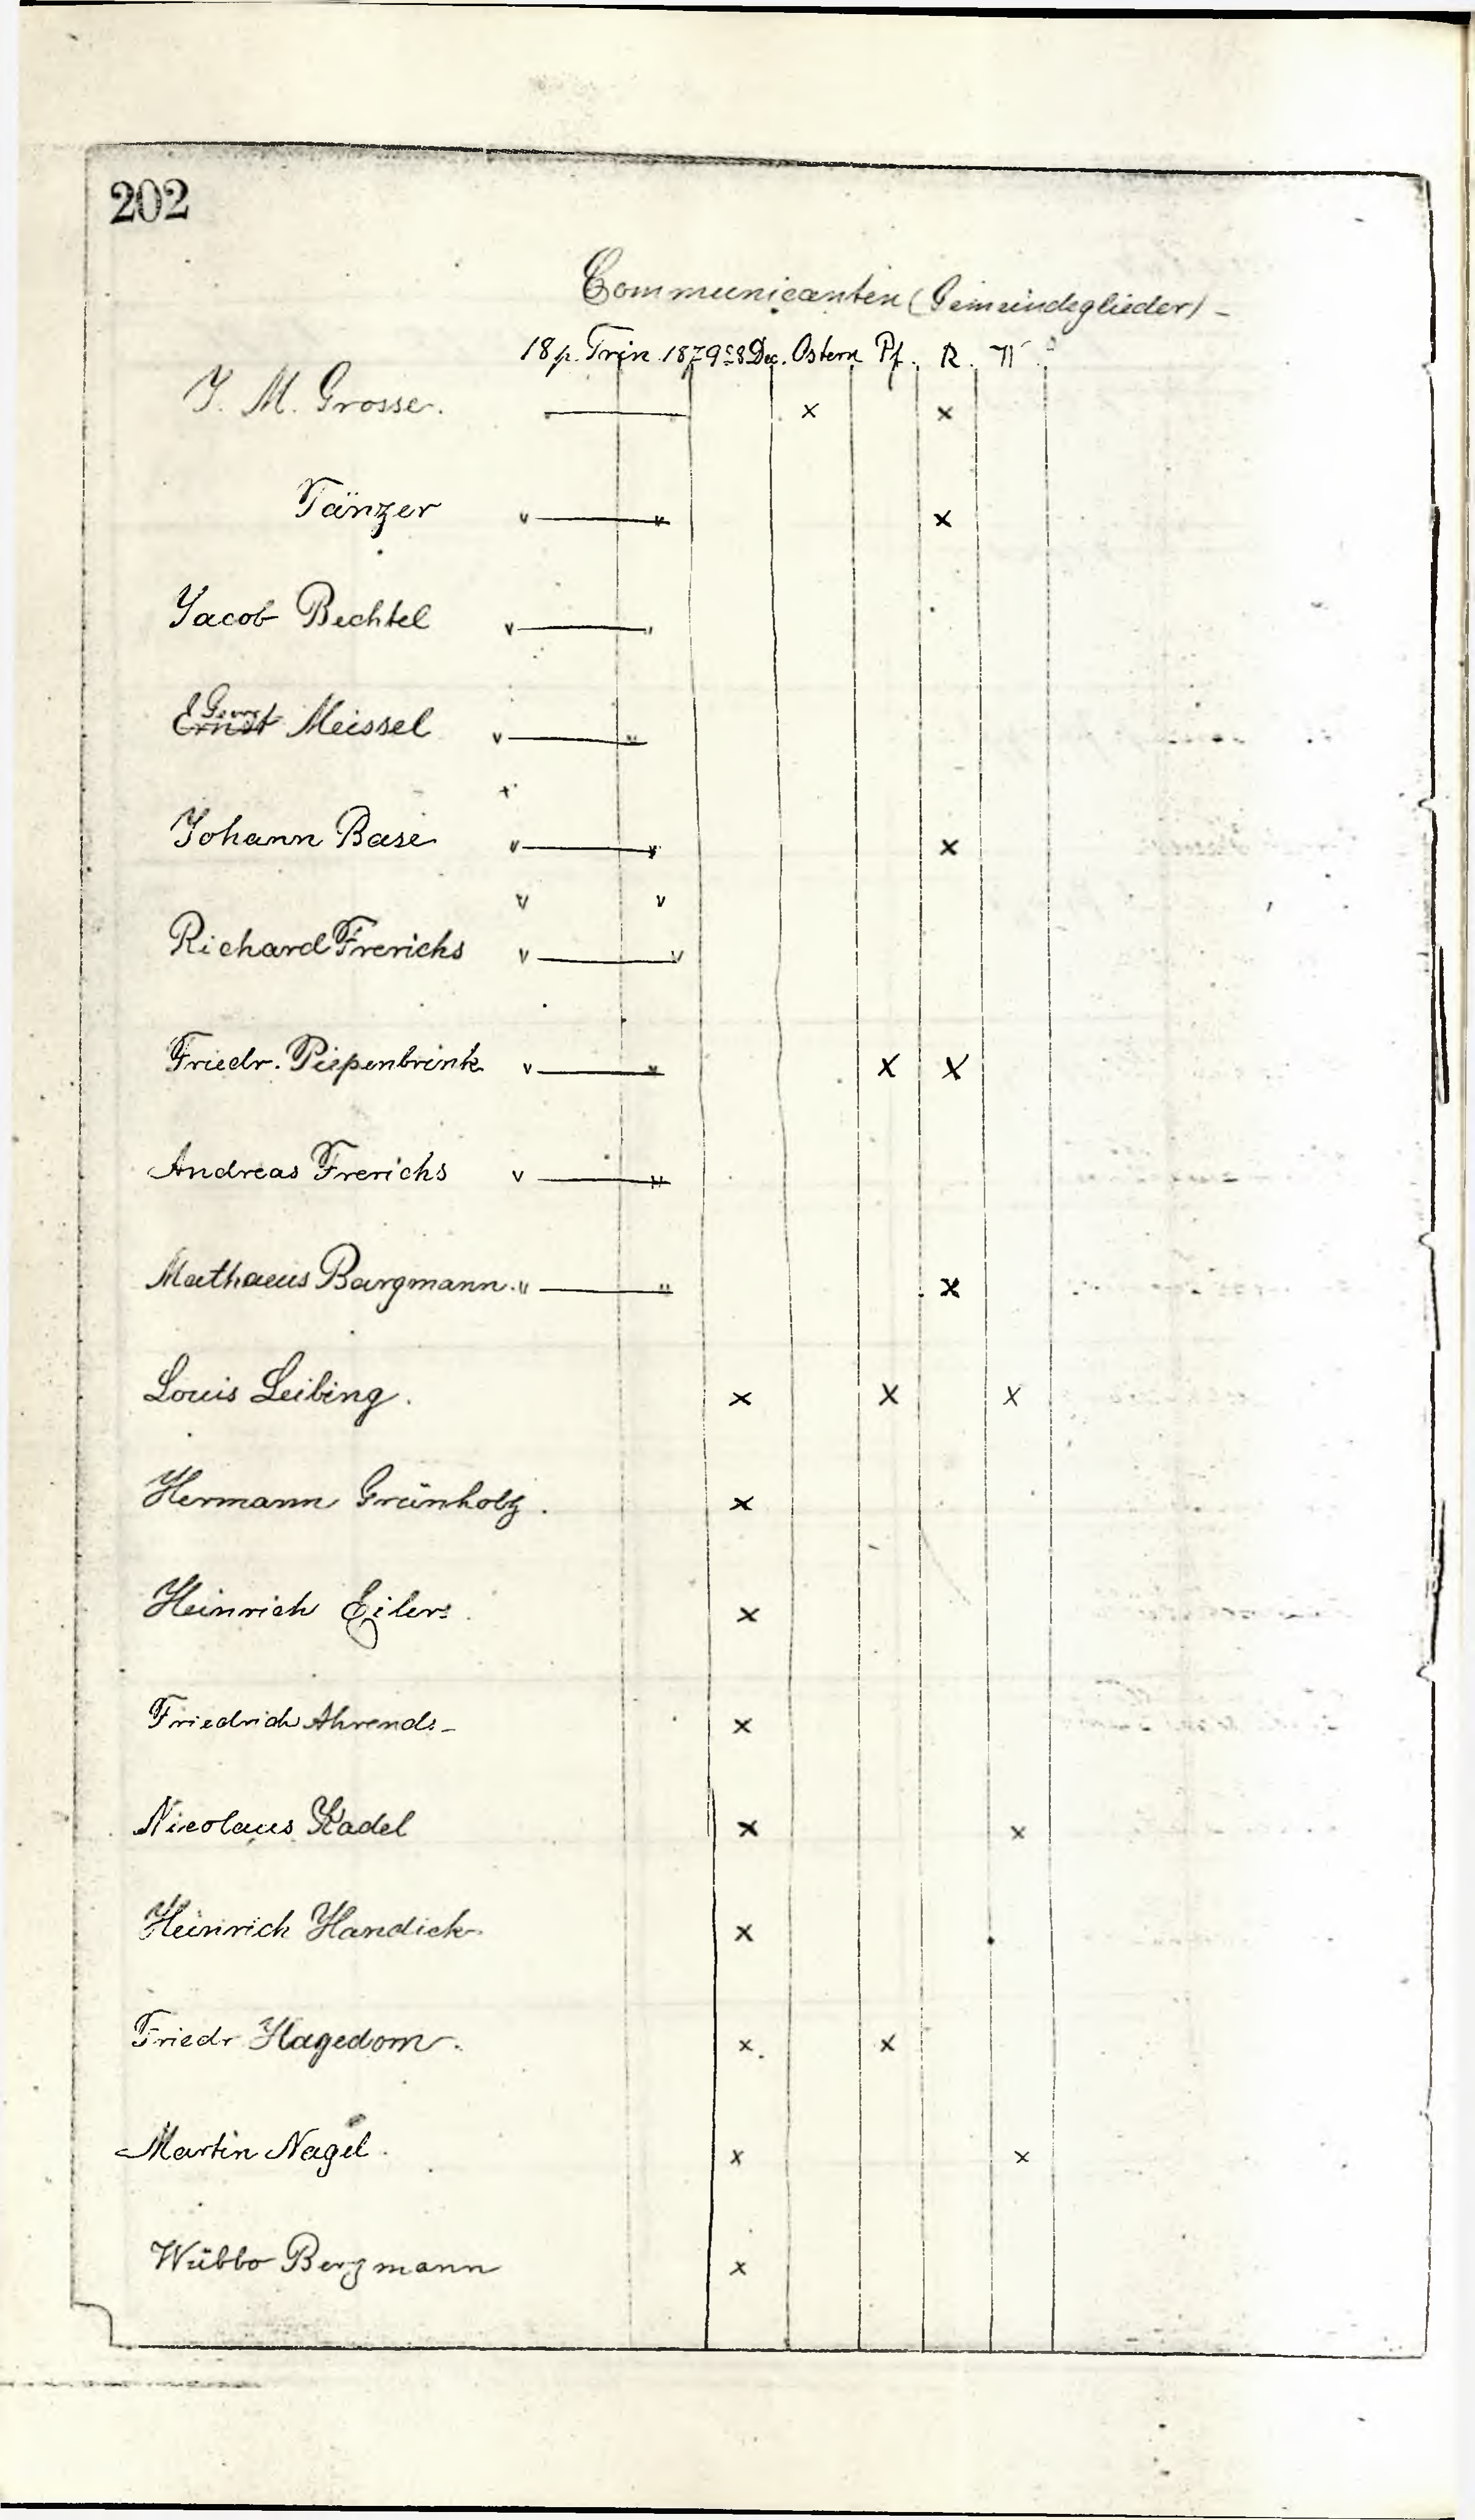 202
Communicanten (Gemeindeglieder) -
18 p. Trin. 1879 28 Dec. Ostern Pf. R. W.
J. M. Grosse. x x
Tänzer " " x
Jacob Bechtel " "
Georg Ernst Meissel " "
Johann Base " " x
Richard Frerichs " "
Friedr. Piepenbrink " " x x
Andreas Frerichs " "
Mathaeus Bargmann " " x
Louis Leibing. x x x
Hermann Grünholz. x
Heinrich Eilers. x
Friedrich Ahrends- x
Nicolaus Kadel x x
Heinrich Handick x
Friedr Hagedorn. x x
Martin Nagel. x x
Wübbo Bergmann x